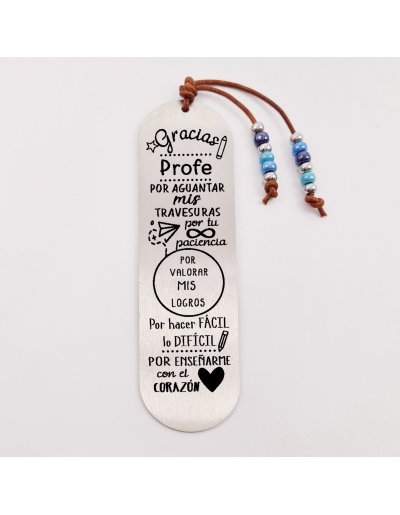 Gracias
Profe
POR AGUANTAR
mis
TRAVESURAS
por tu
paciencia
POR
VALORAR
MIS
LOGROS
Por hacer FÁCIL
lo DIFÍCIL
POR ENSEÑARME
con el
CORAZÓN